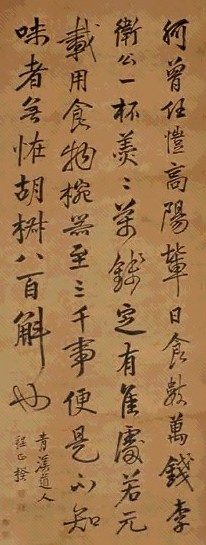 何曾任愷高陽輩日食數萬錢李
衛公一杯羹之萬錢定有佳處若元
載用食物椀器至三千事便是不知
味者無怪胡椒八百斛也
青溪道人
程正揆